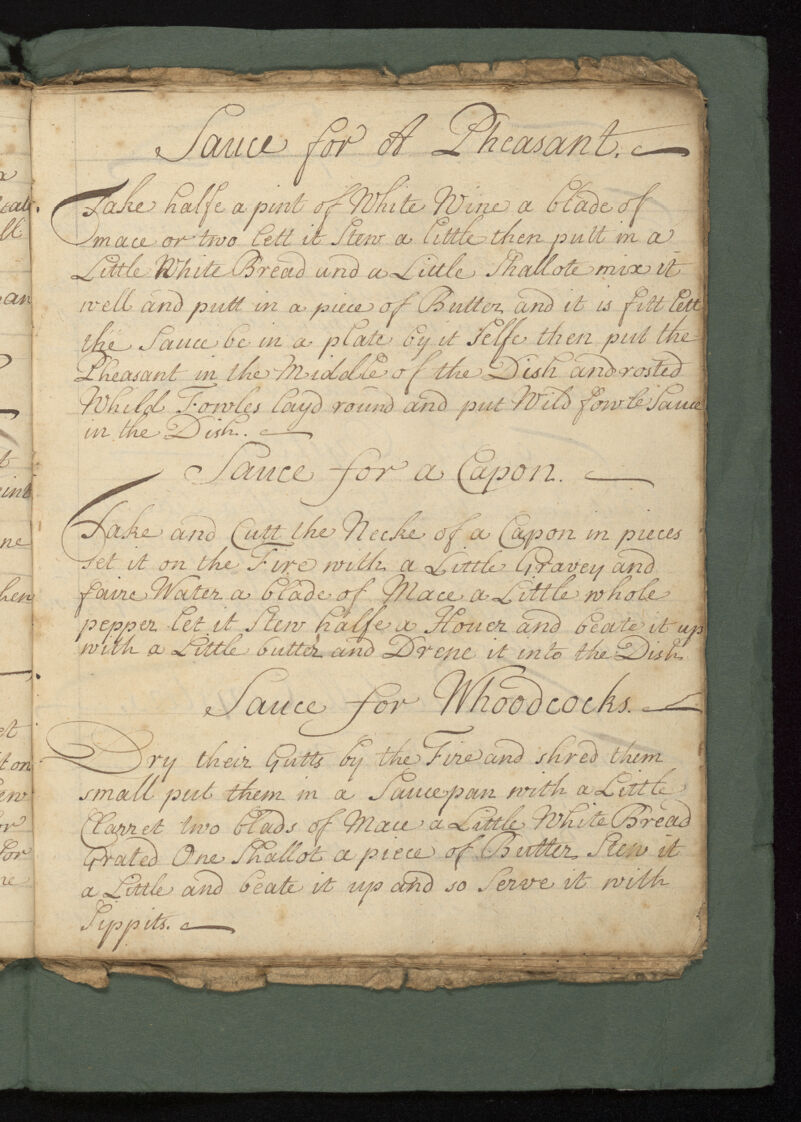 Sauce for A Pheasant.
Take halfe a pint of White Wine a blade of
mace or two lett it Stew a little then putt in a
Little White Bread and a Little Shallote mix it
well and putt in a piece of Butter and it is fitt lett
the Sauce be in a plate by it Selfe then put the
Pheasant in the Middle of the Dish and rosted
Whild Fowles layd round and put Wild fowle Sauce
in the Dish.
Sauce for a Capon.
Take and Cutt the Necke of a Capon in pieces
set it on the Fire with a Little Gravey and
faire Water a blade of Mace a Little whole
pepper let it Stew halfe a Houer and beate it up
with a Little butter and Drene it into the Dish
Sauce for Whoodcocks.
Dry their Gutts by the Fire and shred them
small put them in a Saucepan with a Little
Clarret two blads of Mace a Little White Bread
Grated One Shallot a piece of Butter Stew it
a Little and beate it up and so Serve it with
Sippits.